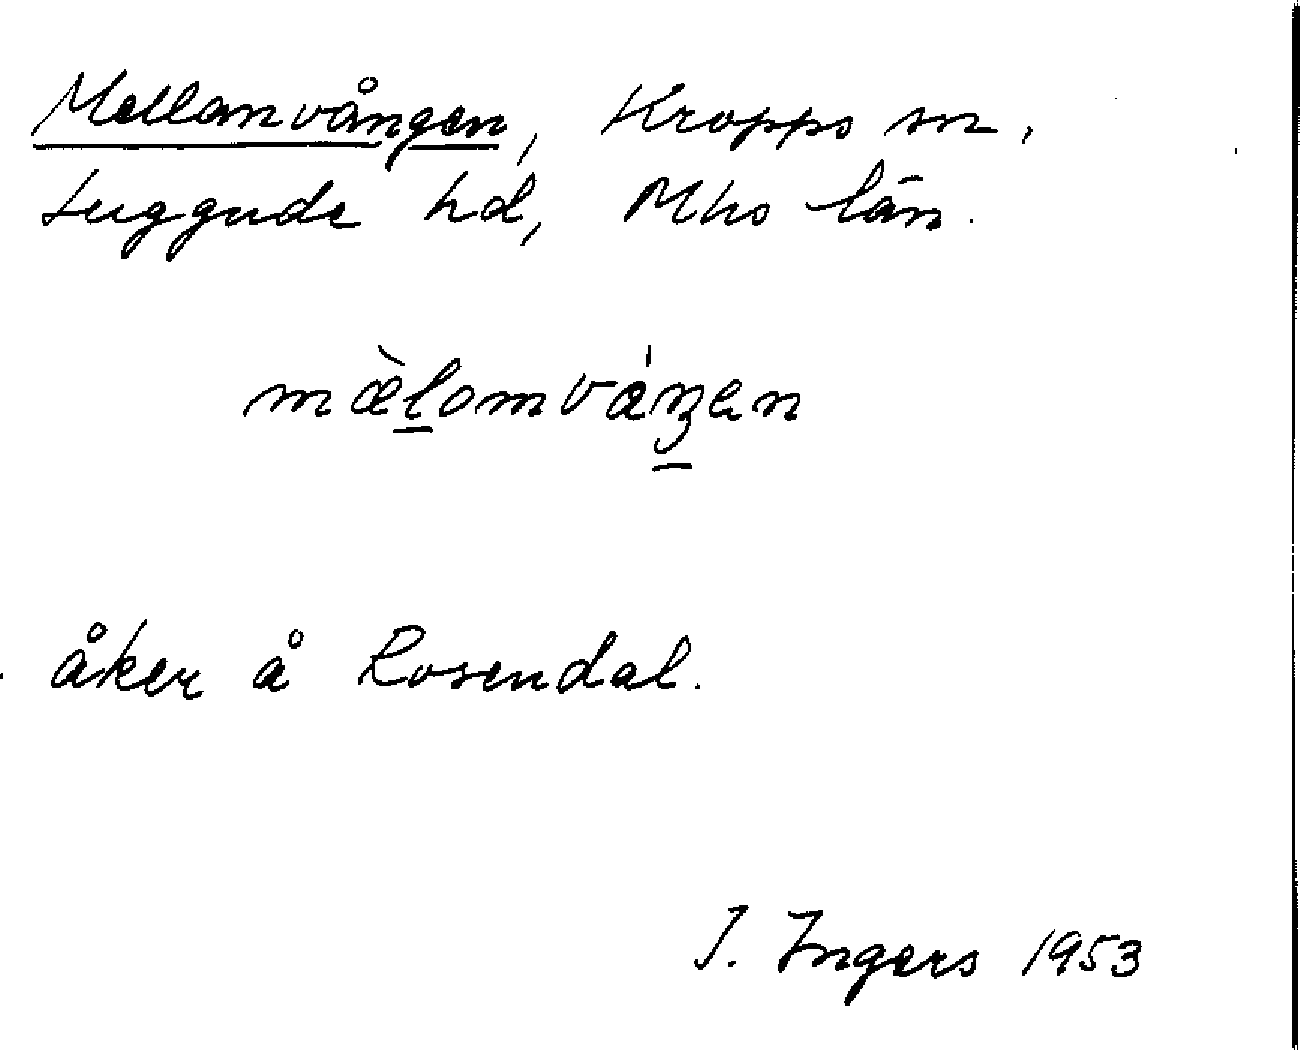 Mellanvången, Kropps sn,
Luggude hd, Mhs län.
mæ̀lomváŋen
åker å Rosendal.
I. Ingers 1953